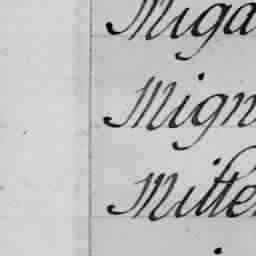 Miga
Mign
Mitte